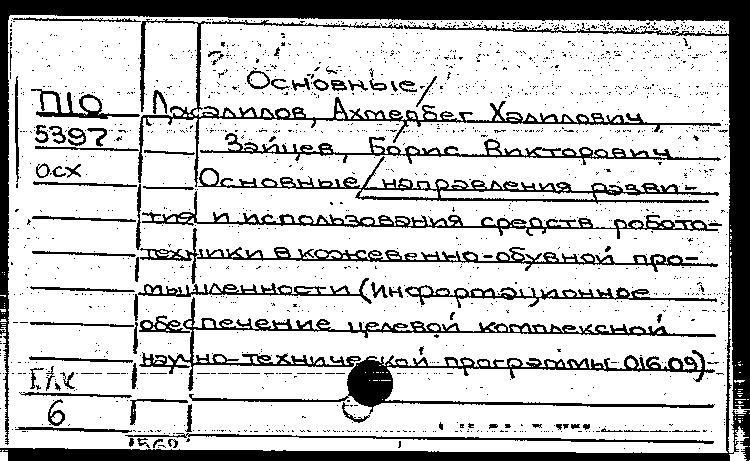 Основные
П10
5397
осх
Ахмедбег Халилович,
Зайцев, Борис Викторович
Основные направления разви-
тия и использования средств робото-
техники в кожевенно-обувной про-
мышленности (Информационное
обеспечение целевой комплексной
научно-технической программы 016.09)
6